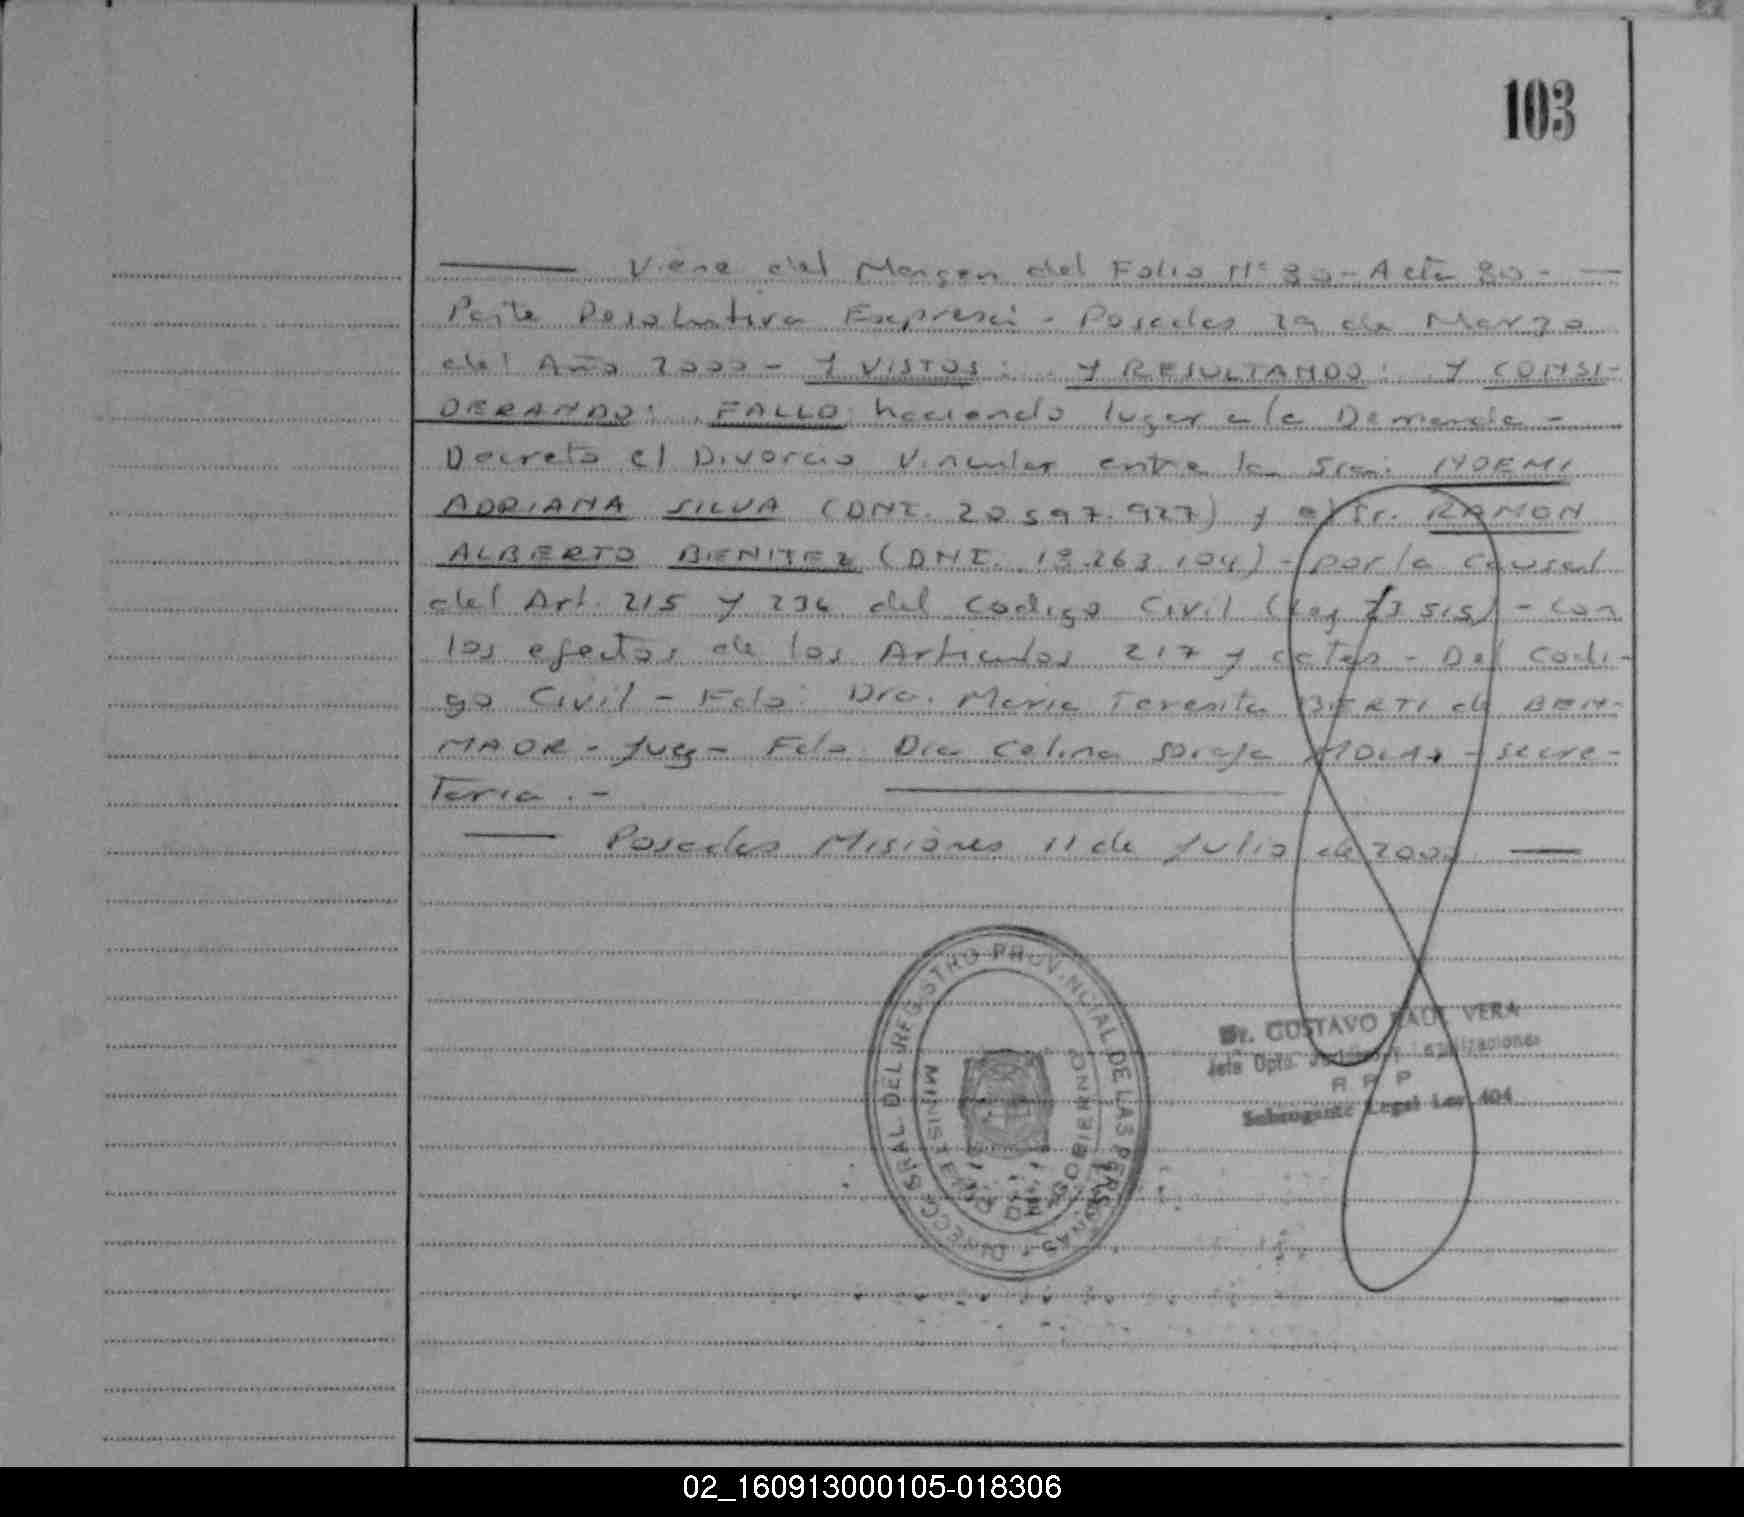 103
Viene del Margen del Folio Nº 80 - Acta 80 -
Parte Resolutiva Expresa - Posadas 29 de Marzo
del Año 2000 - Y VISTOS: Y RESULTANDO: Y CONSI-
DERANDO: FALLO: haciendo lugar a la Demanda -
Decreto el Divorcio Vincular entre la Sra: NOEMI
ADRIANA SILVA (DNI. 20.597.927) y el Sr. RAMON
ALBERTO BENITEZ (DNI. 18.263.104) - por la Causal
del Art. 215 y 236 del Codigo Civil (Ley 23.515) - Con
los efectos de los Articulos 217 y - Del Codi-
go Civil - Fdo: Dra. Maria Teresita BERTI de BEN-
MAOR - Juez - Fdo: Dra Celina - Secre-
Taria. -
Posadas Misiones 11 de Julio de 2000
DIRECC. GRAL DEL REGISTRO PROVINCIAL DE LAS PERSONAS
MINISTERIO DE GOBIERNO
Dr. GUSTAVO RAUL VERA
Jefe Dpto. Legalizaciones
R P P
Subrogante Legal Ley 404
02_160913000105-018306